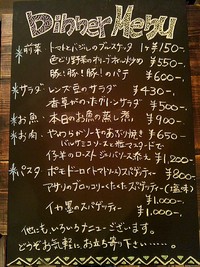 Dinner Menu
*前菜 トマトとバジルのブルスケッタ 1ヶ ¥150-.
色どり野菜のオリーブオイル炒め ¥550-
豚!豚!豚!のパテ ¥600-.
*サラダ レンズ豆のサラダ ¥430-.
香草がらのホグリーンサラダ ¥500-
*お魚 本日のお魚の蒸し煮 ¥900-.
*お肉 やわらかソーキのあぶり焼き ¥650-
バルサミコソースと粒マスタードで
仔羊のロースト ジェノバソース添え ¥1,200-
*パスタ ポモドーロ(トマト)のスパゲティー ¥800-
アサリのブロッコリーくたくたスパゲッティー(塩味)
¥1,000-
イカ墨のスパゲッティー ¥1,000-.
他にも、いろいろなメニューございます。
どうぞお気軽に、お立ち寄り下さい……。